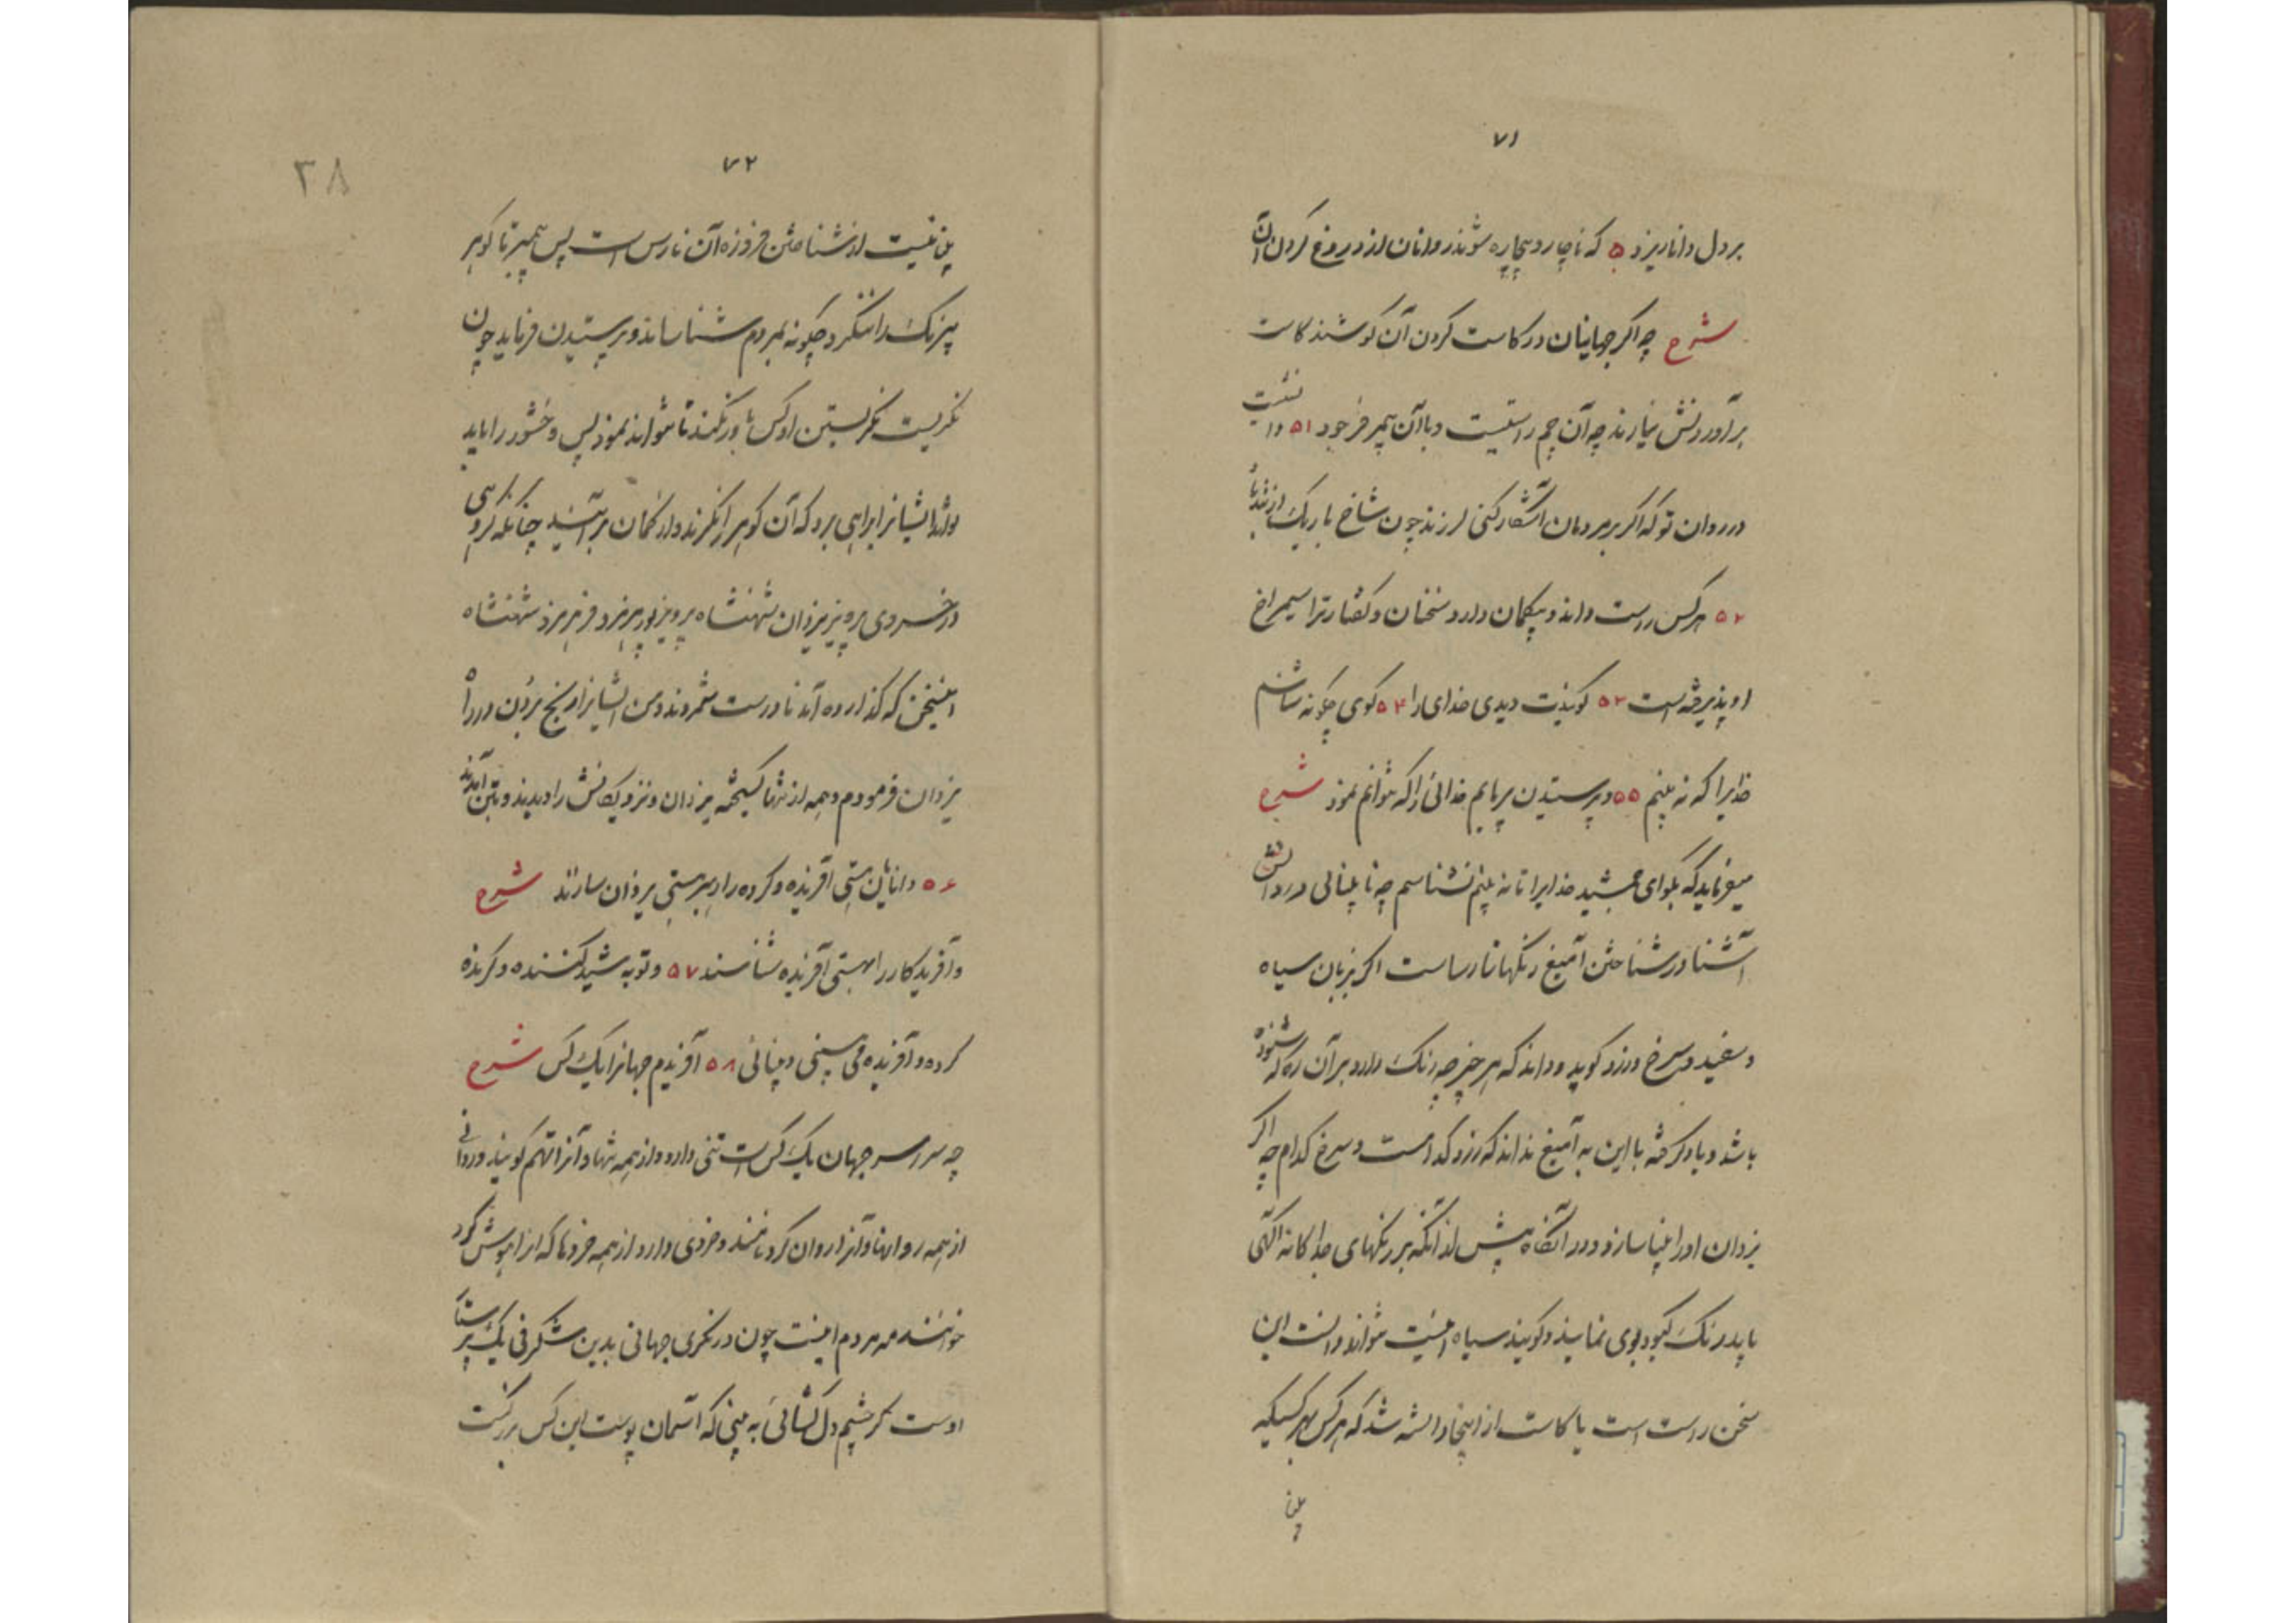 ۷۱
بر دل دانا ریزد ۵ که ناچار و بیچاره شوند روانان از دروغ کردن آن
شرح چه اگر جهانیان در کاست کردن آن کوشند کاست
بر آوردنش نیارند چه آن چم راستیست و با آن پیمبر فرجود ۵۱
در روان تو که اگر بر مردمان آشکار کنی لرزند چون شاخ باریک از تندباد
۵۲ هرکس راست داند و بیکمان دارد سخنان و کفتار ترا سیمراخ
او پذیرفته است ۵۳ کویندت دیدی خدای را ۵۴ کوی چکونه شناسم
خدایرا که نه بینم ۵۵ و پرستیدن خدائی را که نتوانم نمود شرح
میفرماید که بکوای جمشید خدایرا تا نه بینم نشناسم چه نابینائی
آشنا در شناختن آمیغ رنکها نارساست اکر بزبان سیاه
و سفید و سرخ و زرد کوید و داند که هر چیز چه رنک دارد بر آن ره که شنوده
باشد و یاد کرفته با این به آمیغ نداند که زرد کدامست و سرخ کدام چه اکر
یزدان او را بینا سازد و در آنکاه پیش از آنکه بر رنکهای جداکانه آکهی
یابد رنک کبود بوی نمایند و کویند سیاه اینست تواند دانست این
سخن راست است یا کاست از اینجا دانسته شد که هرکس بهر کسیکه
بینا
۷۲
۳۸
بینا نیست از شناختن فروزه آن نارس است پس پیمبر تا کوهر
بیرنک را ننکرد چکونه بمردم شناساند و پرستیدن فرماید چون
نکریست نکریستن او کس باور نکند تا نتواند نمود پس وخشور را باید
ایشانرا براهی برد که آن کوهر را نکرند و از کمان بر آیند چنانکه کروهی
در خسروی پرویز یزدان شهنشاه پرویز پور هرمزد شهنشاه
اینسخن که کذارده آمد نادرست شمردند و من ایشانرا رنج بردن در راه
یزدان فرمودم و همه از تنها کسیخته یزدان و نزدیکانش را دیدند و بتن آمدند
۵۶ دانایان هستی آفریننده و کرده را رهبر هستی یزدان سازند شرح
و آفریدکار را بهستی آفریده شناسند ۵۷ و تو به شید کننده و کرنده
کرده و آفریده می بینی و بینائی ۵۸ آفریدم جهانرا یک کس شرح
چه سراسر جهان یک کس است تنی دارد از همه تنها و آنرا تهم کویند و روانی
از همه روانها و آنرا روان کرد نامند و خردی دارد از همه خردها که آنرا هوش کرد
خوانند مه مردم اینست چون در نکری جهانی بدین شکرفی یک پرستار
اوست کر چشم دل کشائی به بینی که آسمان پوست این کس بزرکست